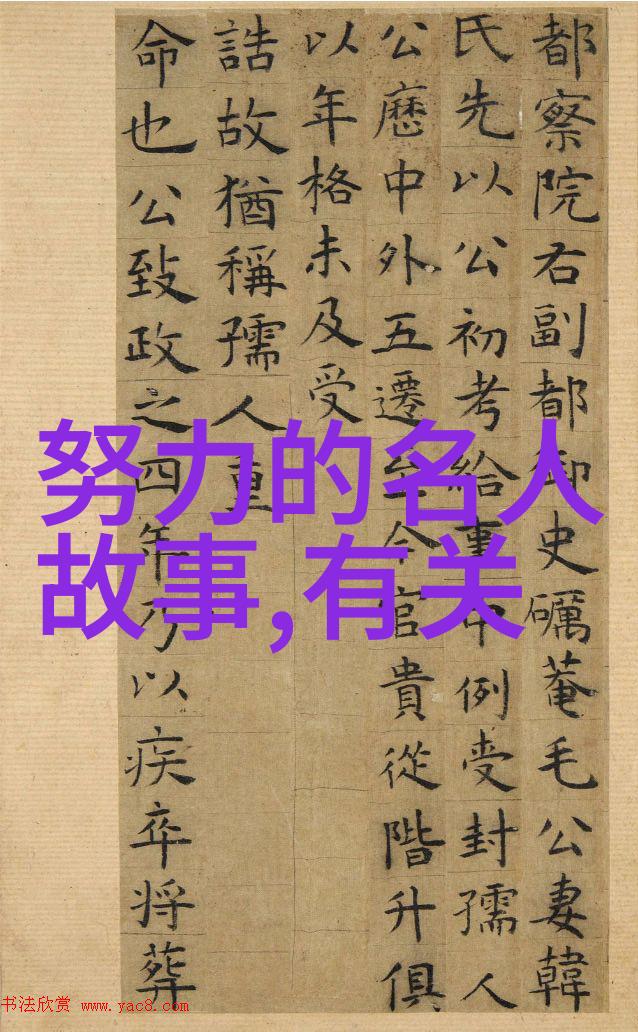 都察院右副都御史礪菴毛公妻韓
氏先以公初考給事中例受封孺人
公歷中外五遷至今官貴從階升俱
以年格未及受
誥故猶稱孺人重
命也公致政之四年乃以疾卒将葬
努力的名人
故事,有关
书法欣赏 www.yac8.com